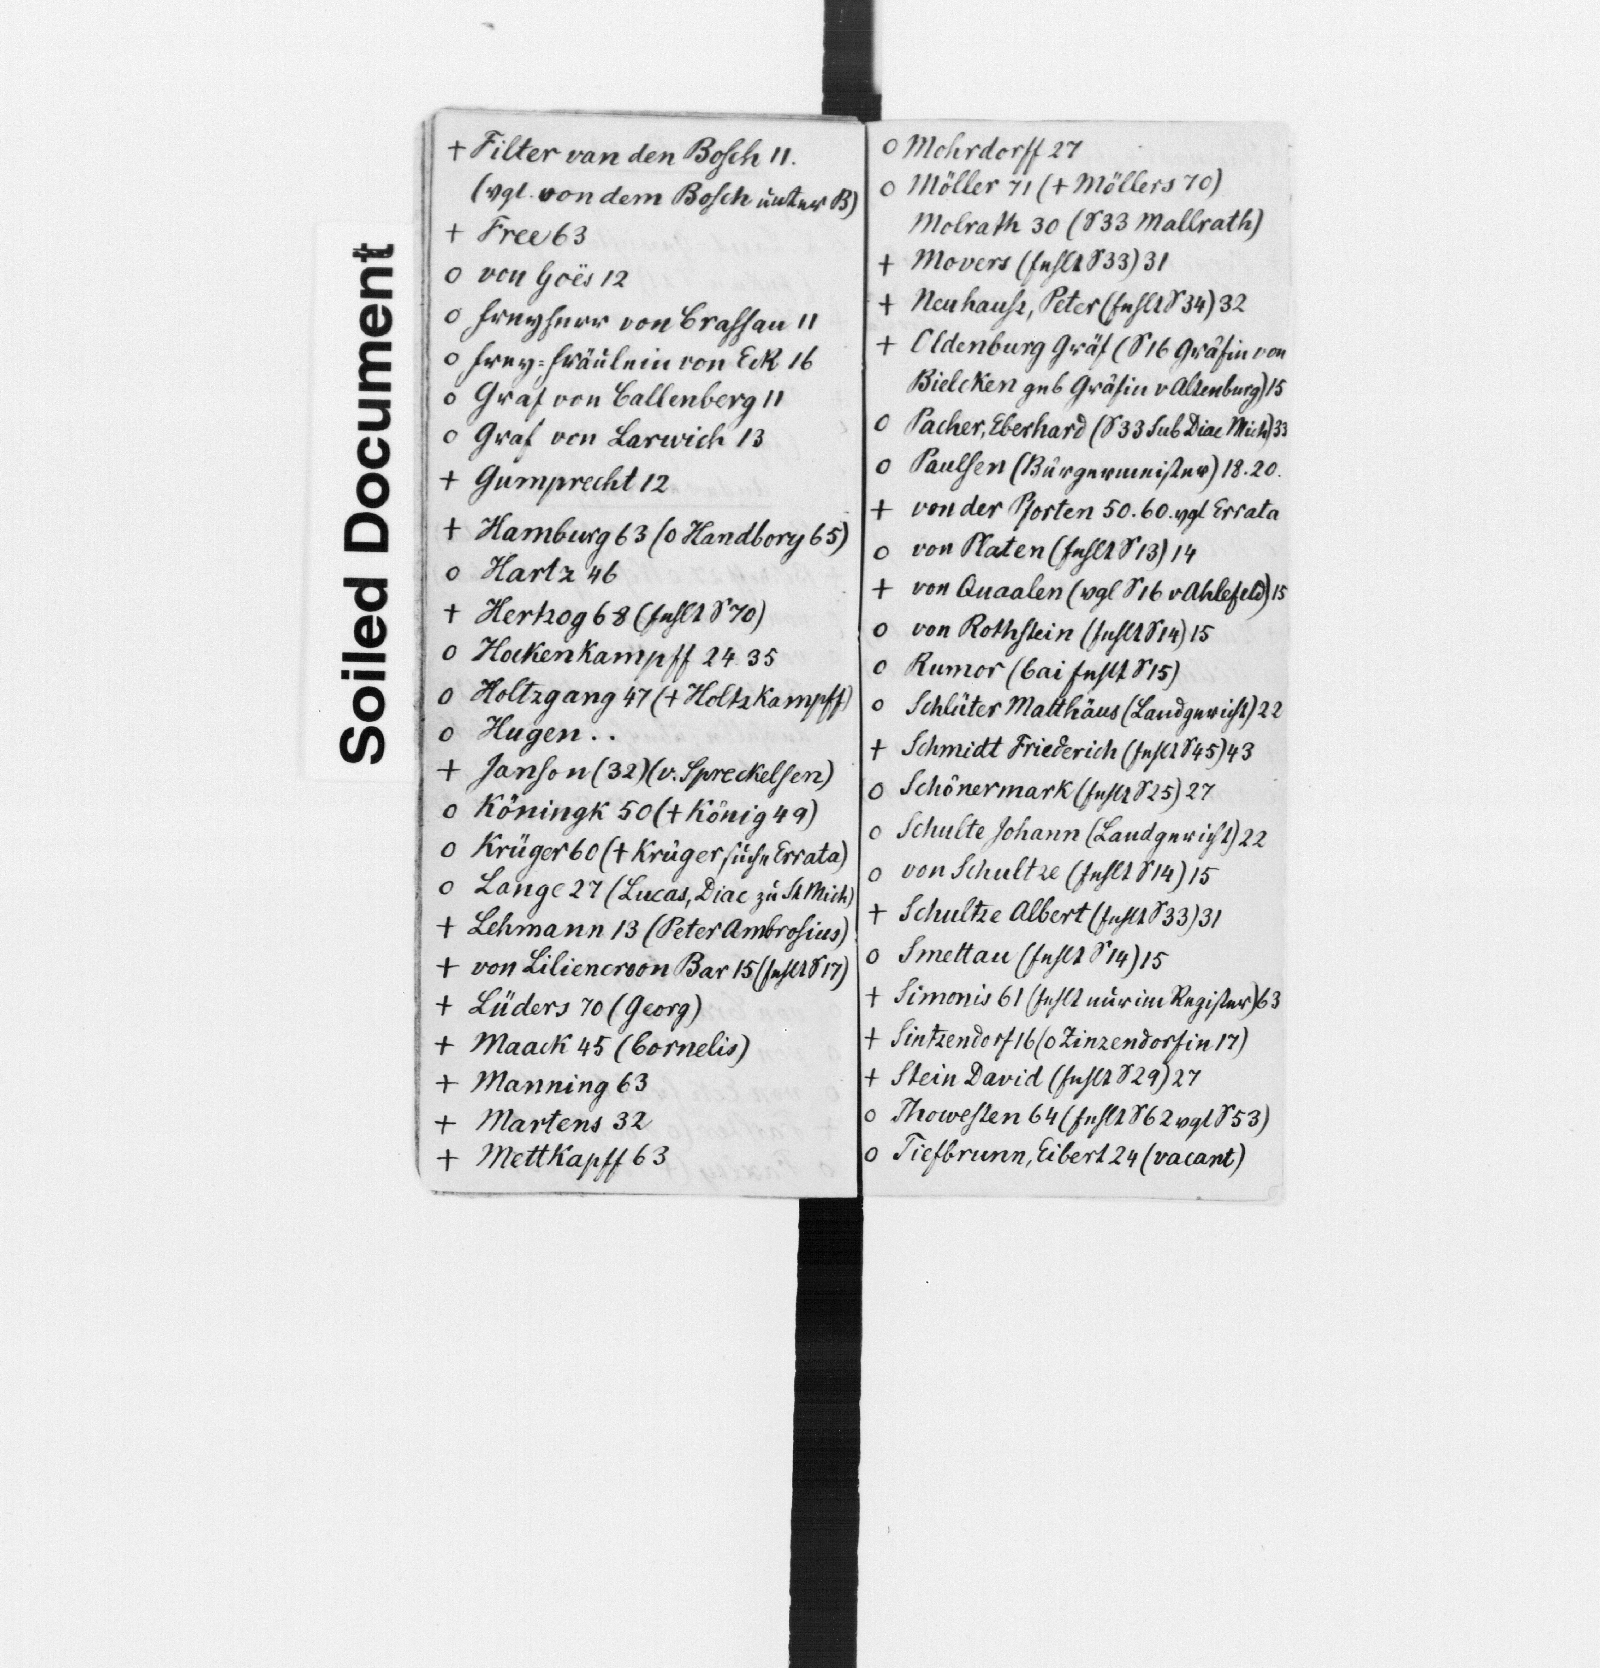 Soiled Document
+ Filter van den Bosch 11.
(vgl. von dem Bosch unter B)
+ Free 63
o von Goës 12
o Freyherr von Crassau 11
o Frey=Fräulein von Eck 16
o Graf von Callenberg 11
o Graf von Larwich 13
+ Gumprecht 12
+ Hamburg 63 (o Handbory 65)
o Hartz 46
+ Hertzog 68 (fehlt S 70)
o Hockenkampff 24. 35
o Holtzgang 47 (+ Holtzkampff)
o Hugen . .
+ Janson (32) (v. Spreckelsen)
o Köningk 50 (+ König 49)
o Krüger 60 (+ Krüger siehe Errata)
o Lange 27 (Lucas, Diac zu St Mich)
+ Lehmann 13 (Peter Ambrosius)
+ von Liliencroon Bar 15 (fehlt S 17)
+ Lüders 70 (Georg)
+ Maack 45 (Cornelis)
+ Manning 63
+ Martens 32
+ Mettkapff 63
o Mohrdorff 27
o Möller 71 (+ Möllers 70)
Molrath 30 (S 33 Mallrath)
+ Movers (fehlt S 33) 31
+ Neuhauss, Peter (fehlt S 34) 32
+ Oldenburg Gräf (S 16 Gräfin von
Bielcken geb Gräfin v Altenburg) 15
o Pacher, Eberhard (S 33 Sub Diac Mich) 33
o Paulsen (Bürgermeister) 18. 20.
+ von der Pforten 50. 60. vgl Errata
o von Platen (fehlt S 13) 14
+ von Quaalen (vgl S 16 v Ahlefeld) 15
o von Rothstein (fehlt S 14) 15
o Rumor (Cai fehlt S 15)
o Schlüter Matthäus (Landgericht) 22
+ Schmidt Friederich (fehlt S 45) 43
o Schönermark (fehlt S 25) 27
o Schulte Johann (Landgericht) 22
o von Schultze (fehlt S 14) 15
+ Schultze Albert (fehlt S 33) 31
o Smettau (fehlt S 14) 15
+ Simonis 61 (fehlt nur im Register) 63
+ Sintzendorf 16 (o Zinzendorfin 17)
+ Stein David (fehlt S 29) 27
o Thowesten 64 (fehlt S 62 vgl S 53)
o Tiefbrunn, Eibert 24 (vacant)